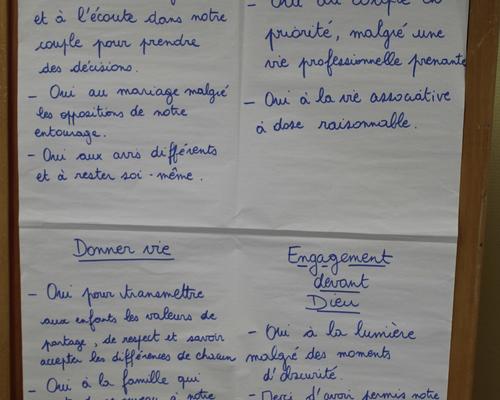 et à l'écoute dans notre
couple pour prendre
des décisions.
- Oui au mariage malgré
les oppositions de notre
entourage.
- Oui aux avis différents
et à rester soi-même.
- Oui au couple en
priorité, malgré une
vie professionnelle prenante
- Oui à la vie associative
à dose raisonnable.
Donner vie
- Oui pour transmettre
aux enfants les valeurs de
partage, de respect et savoir
accepter les différences de chacun
- Oui à la famille qui
à notre
Engagement
devant
Dieu
- Oui à la lumière
malgré des moments
d'obscurité.
- Merci d'avoir permis notre